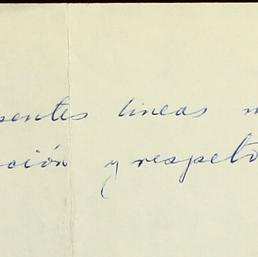 sentes lineas m
ación y respeto